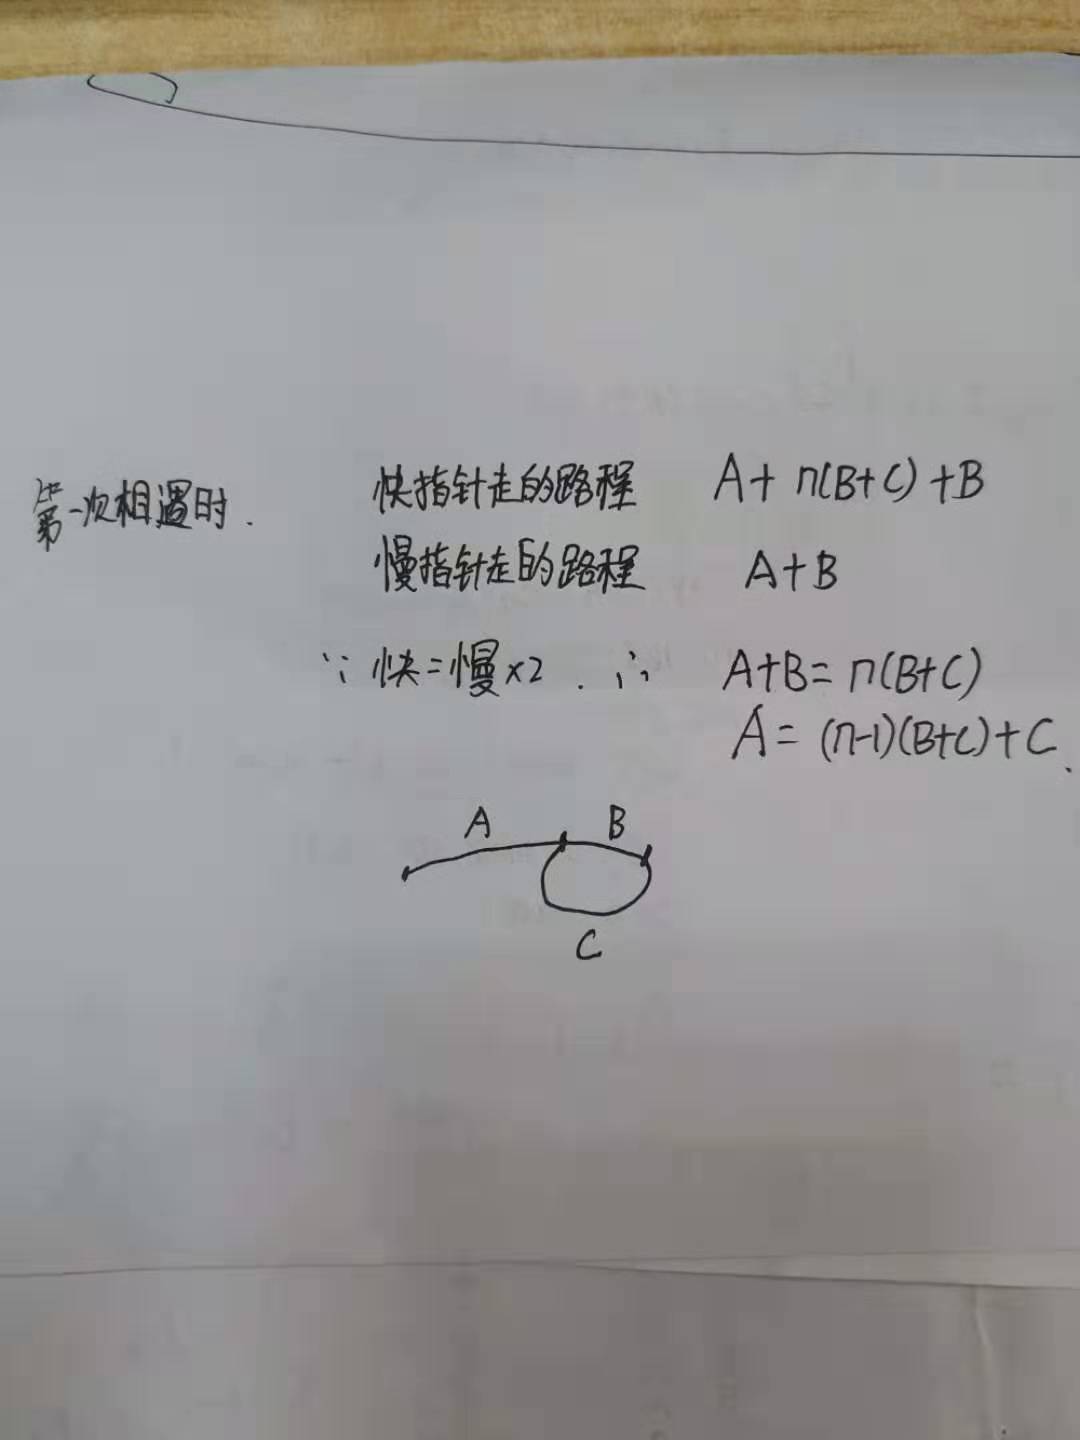 第一次相遇时. 快指针走的路程 A+ n(B+C)+B
慢指针走的路程 A+B
∵ 快=慢×2. ∴ A+B= n(B+C)
A= (n-1)(B+C)+C.
A B
C